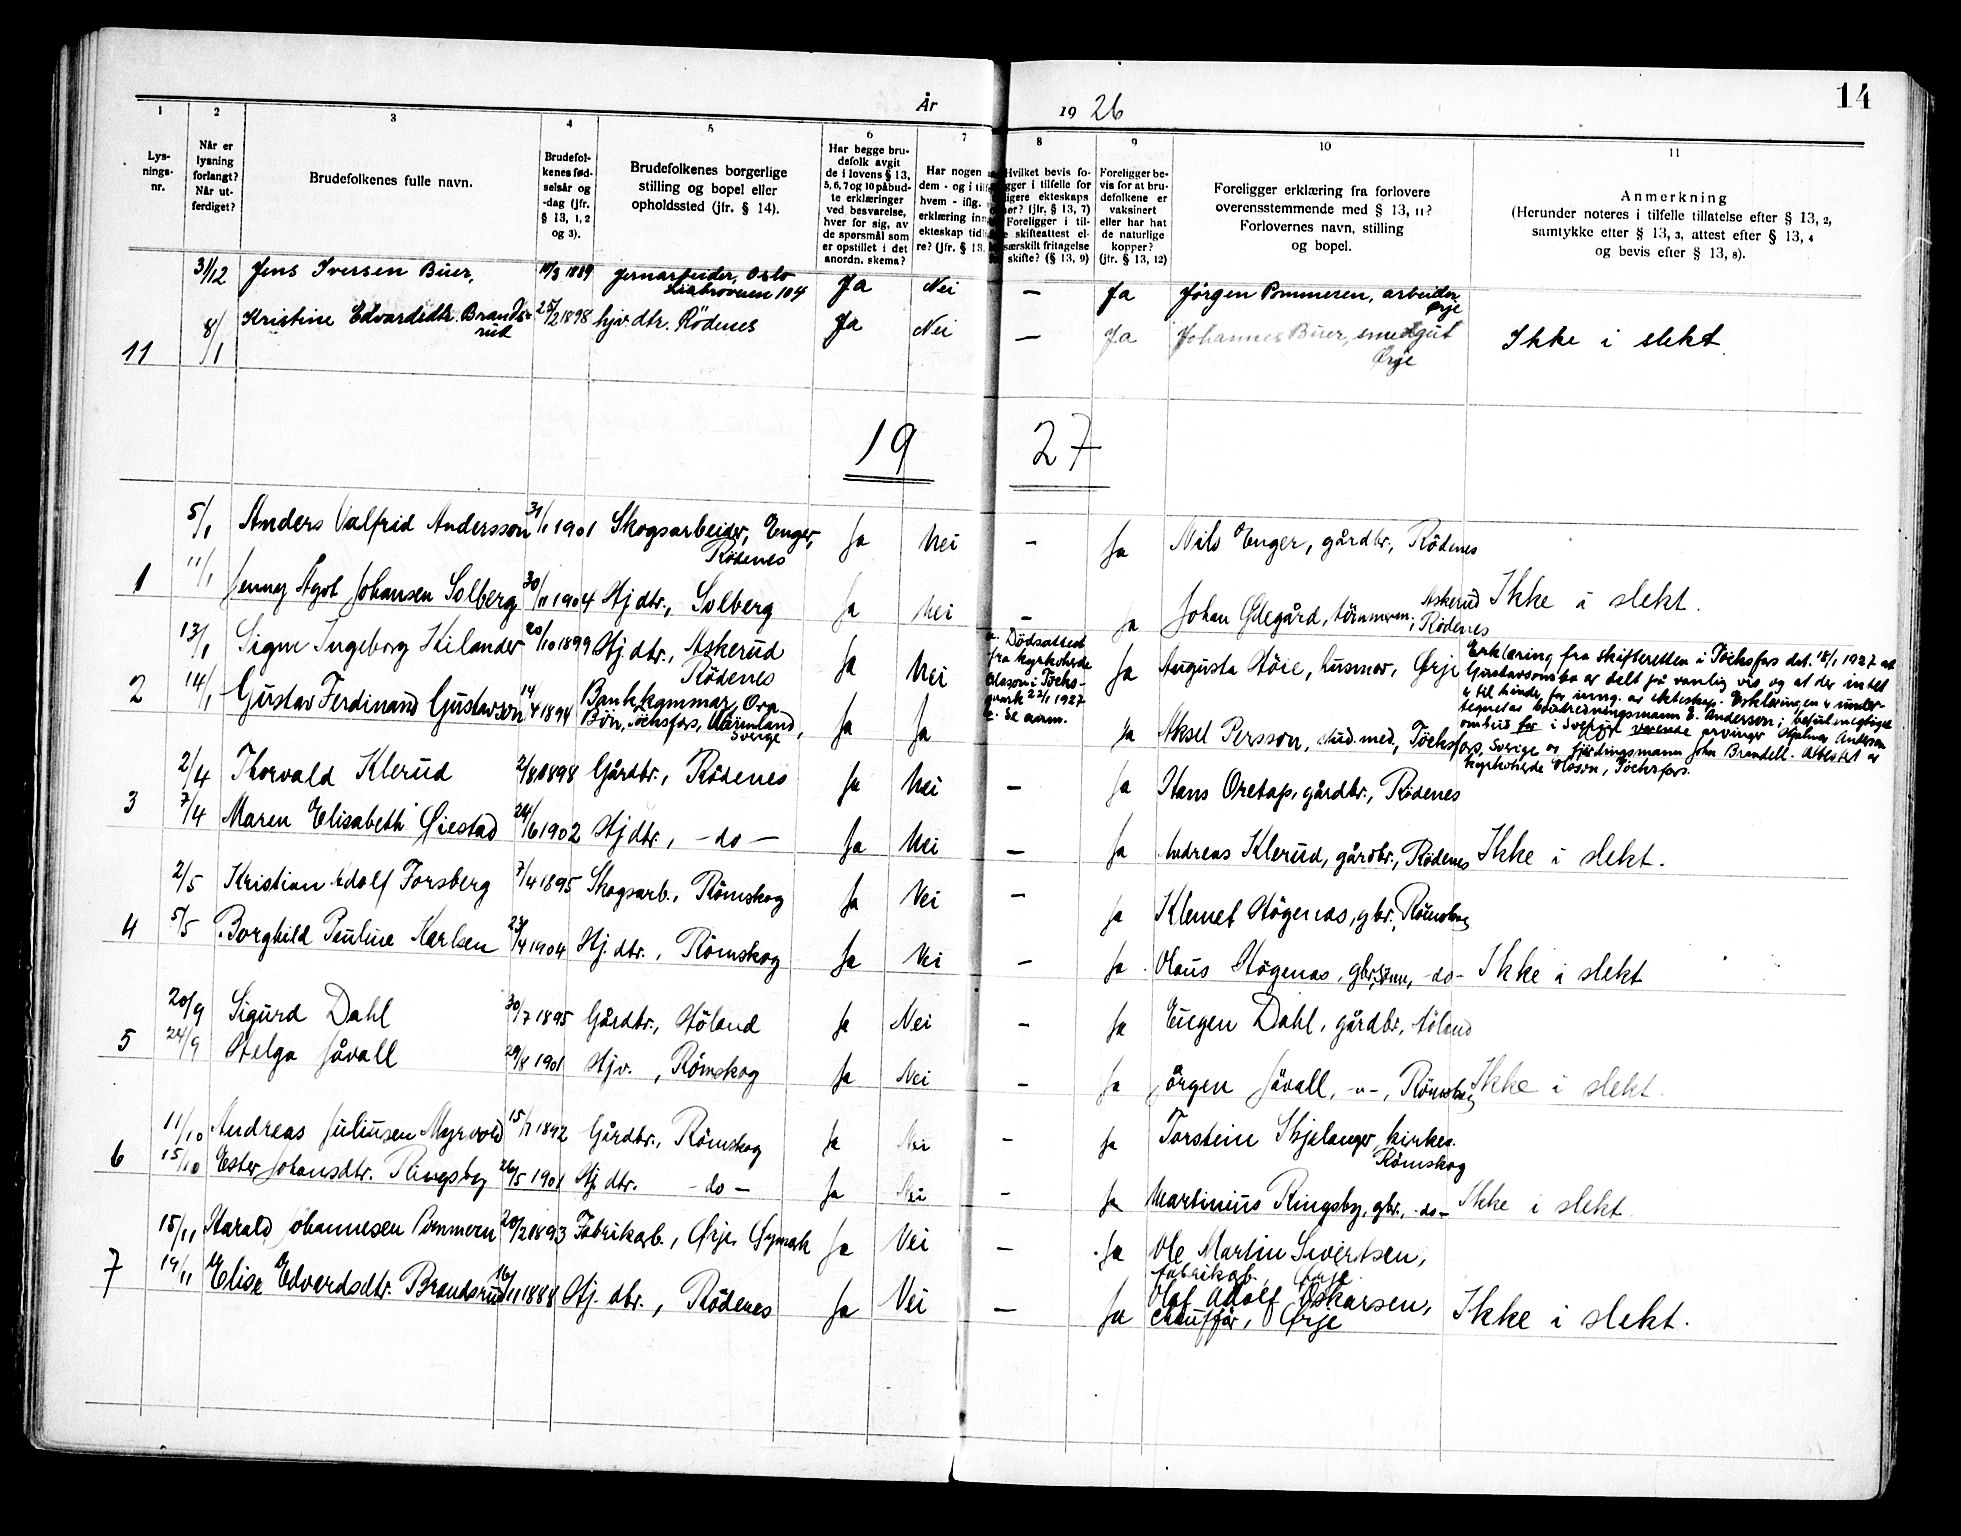 År 1926
14
1 2 3 4 5 6 7 8 9 10 11
Lys-
nings-
nr.
Når er
lysning
forlangt?
Når ut-
ferdiget?
Brudefolkenes fulle navn.
Brudefol-
kenes fød-
selsår og
-dag (jfr.
§ 13, 1, 2
og 3).
Brudefolkenes borgerlige
stilling og bopel eller
opholdssted (jfr. § 14).
Har begge bru-
defolk avgit
de i lovens § 13,
5, 6, 7 og 10 påbud-
te erklæringer
ved besvarelse,
hver for sig, av
de spørsmål som
er opstillet i det
anordn. skema?
Har nogen
dem - og i tilf
hvem - iflg.
erklæring inn
ekteskap tid
re? (jfr. § 13,
Hvilket bevis fo-
gger i tilfelle for
ligere ekteskaps
r? (jfr. § 13, 7)
Foreligger i til-
e skifteattest el-
særskilt fritagelse
skifte? (§ 13, 9)
Foreligger be-
vis for at bru-
defolkene er
vaksinert
eller har hat
de naturlige
kopper?
(jfr. § 13, 12)
Foreligger erklæring fra forlovere
overensstemmende med § 13, 11?
Forlovernes navn, stilling
og bopel.
Anmerkning
(Herunder noteres i tilfelle tillatelse efter § 13, 2,
samtykke efter § 13, 3, attest efter § 13, 4
og bevis efter § 13, 8).
31/12 Jens Iversen Buer, 1889 Jernarbeider, Oslo Ja Nei — Ja Jørgen Pommeren, arbeider
Liabroveien 104 Ørje
11 8/1 Kristine Edvardsdtr. Brands- 25/2 1898 hjv. dtr. Rödenes Ja Nei — Ja Johannes Buer, smedgut Ikke i slekt.
rud Ørje
19 27
5/1 Anders Valfrid Andersson 31/1 1901 Skogsarbeider, Enger, Ja Nei — Ja Nils Enger, gårdbr., Rödenes
Rödenes
1 11/1 Jenny Agot Johansen Solberg 30/11 1904 Hj dtr., Solberg Ja Nei — Ja Johan Ødegård, tömmerm., Askerud Ikke i slekt.
Rödenes
2 13/1 Signe Ingeborg Kilander 20/10 1899 Hj dtr., Askerud Ja Nei Ja Augusta Höie, husmor, Ørje
Rödenes
Dødsattest
fra kyrkoherde
Olsson i Töcks-
mark 22/1 1927
2. Se anm.
14/1 Gustav Ferdinand Gustavsson 14/4 1894 Bankkommissar, Ora Ja Ja Ja Aksel Persson, stud. med., Töcksfors, Sverige
Bön, Töcksfors, Värmland,
Sverige
Erklæring fra skifteretten i Töcksfors dat. 18/1 1927 at
Gustavssons bo er delt på vanlig vis og at der intet
er til hinder for inng. av ekteskap. Erklæringen er under-
tegnet av boutredningsmann E. Andersson, befulmegtiget
ombud for i Sverige værende arvinger Hjalmar Andersson
og fjerdingsmann John Brandell. Attestet av
kyrkoherde Olsson, Töcksfors.
2/4 Thorvald Klerud 2/8 1898 Gårdbr., Rödenes Ja Nei — Ja Hans Oretop, gårdbr., Rödenes
3 7/4 Maren Elisabeth Øiestad 24/6 1902 Hj dtr., -do- Ja Nei — Ja Andreas Klerud, gårdbr., Rödenes Ikke i slekt.
2/5 Kristian Adolf Forsberg 7/4 1895 Skogsarb., Römskog Ja Nei — Ja Klemet Högenas, gbr., Römskog
4 5/5 Borghild Pauline Karlsen 23/4 1904 Hj. dtr., Römskog Ja Nei — Ja Olaus Högenas, gbr.sønn, -do- Ikke i slekt
20/9 Sigurd Dahl 30/7 1895 Gårdbr., Höland Ja Nei — Ja Eugen Dahl, gårdbr., Höland
5 24/9 Helga Jåvall 29/8 1901 Hjv., Römskog Ja Nei — Ja Jörgen Jåvall, -"-, Römskog Ikke i slekt.
11/10 Andreas Juliusen Myrvold 15/7 1892 Gårdbr., Römskog Ja Nei — Ja Torstein Skjelanger, kirkes.
Römskog
6 15/10 Ester Johansdtr. Ringsby 26/5 1901 Hj. dtr. -do- Ja Nei — Ja Martinius Ringsby, gbr., -do- Ikke i slekt.
15/11 Harald Johannesen Pommern 20/2 1893 Fabrikarb., Ørje, Øymark Ja Nei — Ja Ole Martin Sivertsen,
fabrikarb., Ørje.
7 19/11 Elise Edvardsdtr. Brandsrud 16/11 1888 Hj. dtr., Rödenes Ja Nei — Ja Olaf Adolf Oskarsen, Ikke i slekt.
chauffør, Ørje